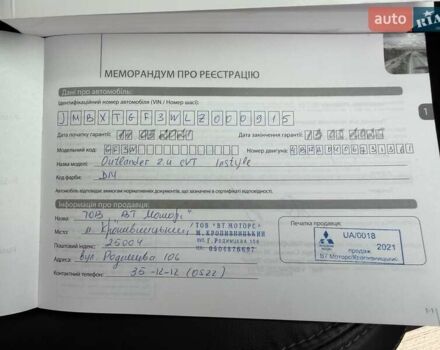 auto RIA
МЕМОРАНДУМ ПРО РЕЄСТРАЦІЮ
Дані про автомобіль:
Ідентифікаційний номер автомобіля (VIN / Номер шасі):
JMBXTGF3WLZ000915
Дата початку гарантії:
Дата закінчення гарантії:
1
Модельний код: GF3W
Номер двигуна:
Назва моделі: Outlander 2.4 CVT Instyle
Код фарби: D14
Автомобіль відповідає вимогам нормативних документів, що зазначені в сертифікаті відповідності.
Інформація про продавця:
Назва: ТОВ "ВТ Моторс"
Місто: м. Кропивницький
Поштовий індекс: 25004
Адреса: вул. Родимцева 106
Контактний телефон: 35-12-12 (0522)
ТОВ "ВТ МОТОРС"
М. КРОПИВНИЦЬКИЙ
ВУЛ. Г. РОДИМЦЕВА 106
Печатка продавця:
UA/0018
продаж 2021
ВТ Моторс/Кропивницький
1-1